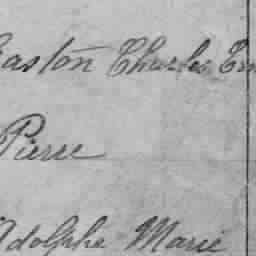 Gaston Charles
Pierre
Adolphe Marie